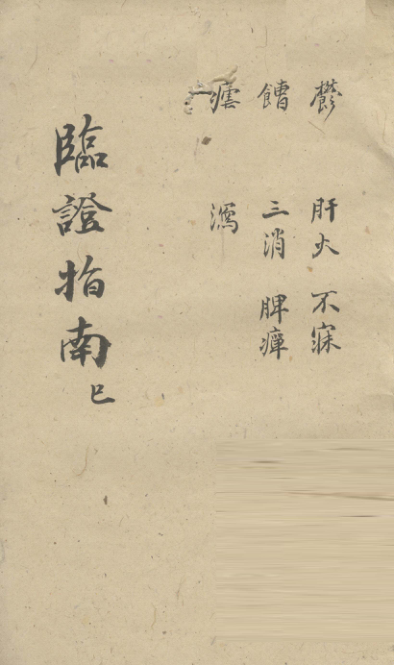 鬱 肝火 不寐
三消 脾癉
瘧 瀉
臨證指南 巳